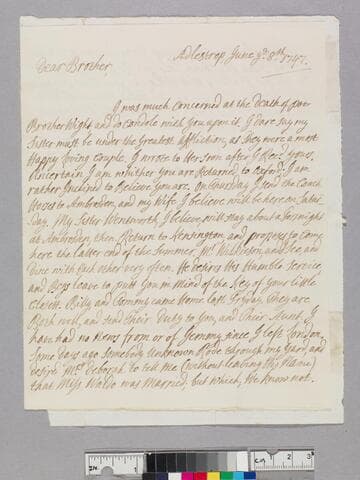 Adlestrop June ye 8th 1747.
Dear Brother
I was much concerned at the Death of poor
Brother Wight and do condole with you upon it, I dare say my
Sister must be under the Greatest Affliction, as They were a most
Happy loving Couple. I wrote to Her soon after I Recd yours.
Uncertain I am whither You are Returned to Oxford. I am
rather Inclined to Believe you are. on thursday I send the Coach
Horses to Ambrosden, and my Wife I believe will be here on Satur-
Day. My Sister Wentworth I believe will stay about a fortnight
at Ambrosden, then Return to Kensington, and proposes to come
here the latter end of the Summer. Mr and I see, and
Dine with Each other very often. He desires His Humble Service,
and Begs leave to putt You in Mind of the Key of Your little
Closett. Billy and Tommy came Home last Fryday. They are
Both well, and send Their Duty to You, and Their Aunt. I
have had no News from or of Jemmy since I left London.
Some days ago somebody Unknown Rode through my Yard, and
desired Mrs Deborah to tell me (without leaving His Name)
that Miss Waldo was Married, but which, We know not.
IN. 1 2 CM 1 2